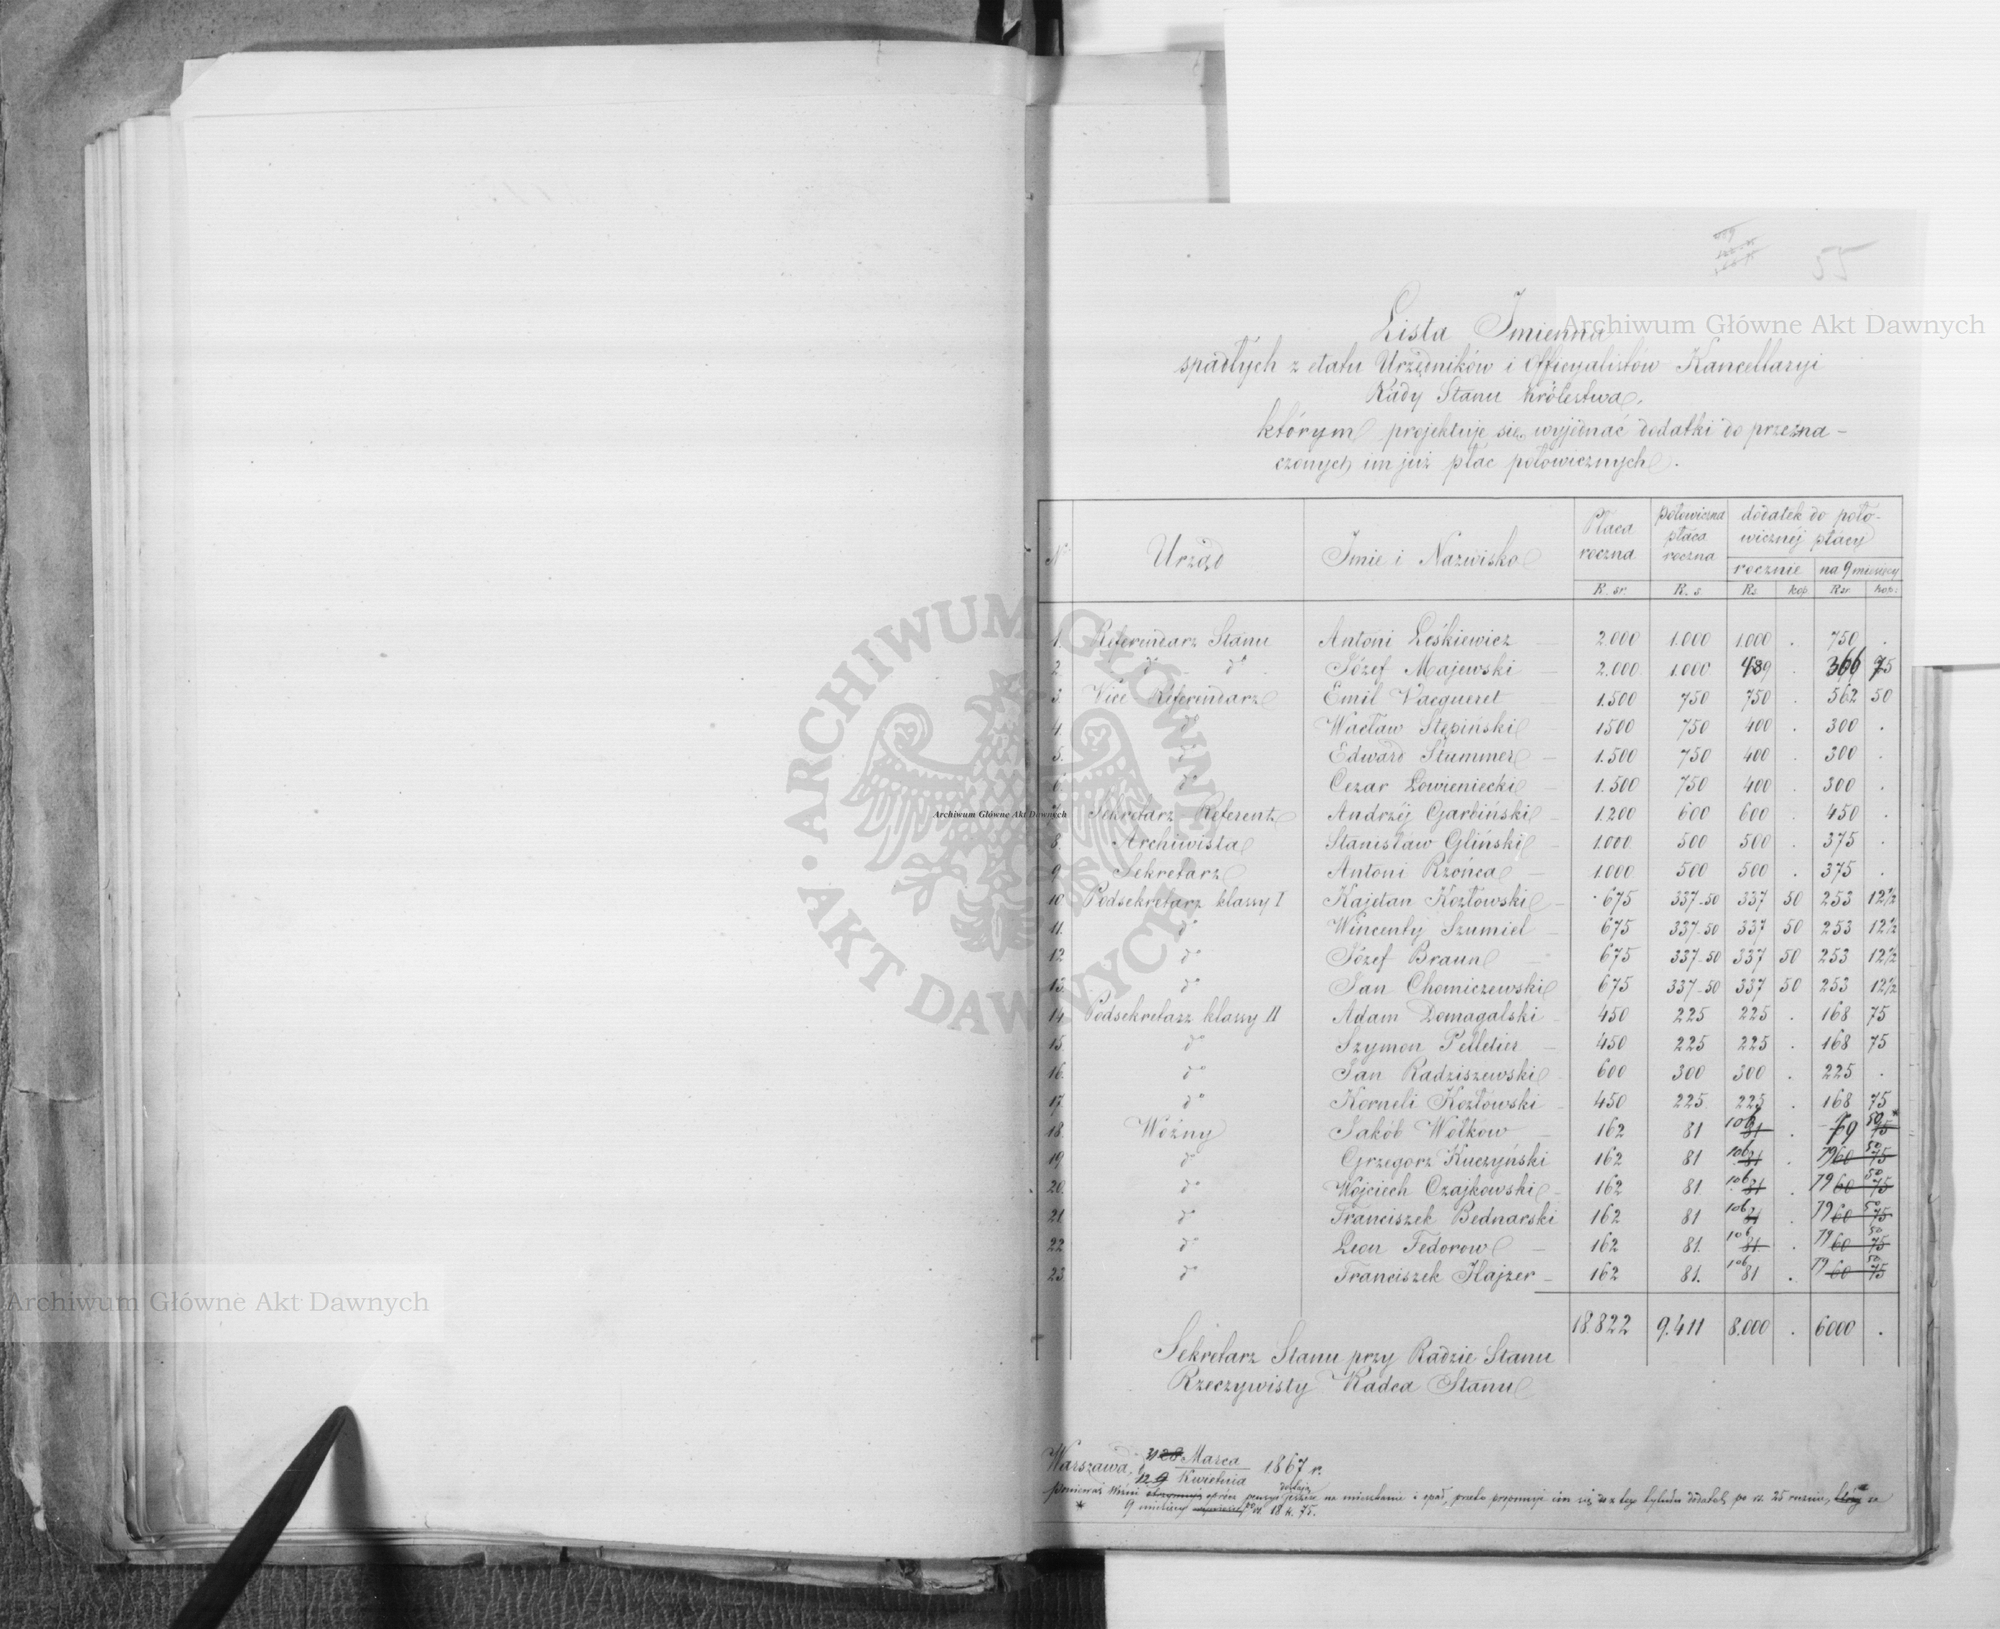 55
Lista Imienna
spadłych z etatu Urzędników i Officyalistów Kancellaryi
Rady Stanu Królestwa,
którym projektuje się wyjednać dodatki do przezna-
czonych im już płac połowicznych.
N Urząd Imie i Nazwisko Płaca roczna połowiczna płaca roczna dodatek do poło-wicznéj płacy
rocznie na 9 miesięcy
R. sr. R. s. Rs. kop. Rsr. kop:
1. Referendarz Stanu Antoni Leśkiewicz 2.000 1.000 1.000 . 750 .
2. do do Józef Majewski 2.000 1.000 489 . 366 75
3. Vice Referendarz Emil Vacqueret 1.500 750 750 . 562 50
4. do Wacław Stępiński 1500 750 400 . 300 .
5. do Edward Stummer 1.500 750 400 . 300 .
6. do Cezar Łowieniecki 1.500 750 400 . 300 .
7. Sekretarz Referent Andrzéj Garbiński 1.200 600 600 . 450 .
8. Archiwista Stanisław Gliński 1.000 500 500 . 375 .
9. Sekretarz Antoni Rzońca 1.000 500 500 . 375 .
10 Podsekretarz klassy I Kajetan Kozłowski 675 337-50 337 50 253 12½
11. do Wincenty Szumiel 675 337-50 337 50 253 12½
12 do Józef Braun 675 337-50 337 50 253 12½
13. do Jan Chomiczewski 675 337-50 337 50 253 12½
14. Podsekretarz klassy II Adam Domagalski 450 225 225 . 168 75
15. do Szymon Pelletier 450 225 225 . 168 75
16. do Jan Radziszewski 600 300 300 . 225 .
17. do Korneli Kozłowski 450 225 225 . 168 75
18. Woźny Jakób Wołkow 162 81 106 81 . 79 50 75 *
19 do Grzegorz Kuczyński 162 81 106 81 . 79 60 50 75
20. do Wojciech Czajkowski 162 81 106 81 . 79 60 50 75
21 do Franciszek Bednarski 162 81 106 81 . 79 60 50 75
22 do Leon Fedorow 162 81. 106 81. . 79 60 50 75
23 do Franciszek Hajzer 162 81. 106 81 . 79 60 50 75
18.822 9.411 8.000 . 6000 .
Sekretarz Stanu przy Radzie Stanu
Rzeczywisty Radca Stanu
Warszawa, d. 31 Marca
12 Kwietnia 1867 r.
ponieważ Woźni otrzymują oprócz pensyi jeszcze dodatek na mieszkanie i opał, przeto proponuje im się z tego tytułu dodatek po rs. 25 rocznie, za
* 9 miesięcy po rs 18 k. 75.
Archiwum Główne Akt Dawnych
Archiwum Główne Akt Dawnych
Archiwum Główne Akt Dawnych
ARCHIWUM GŁÓWNE · AKT DAWNYCH ·